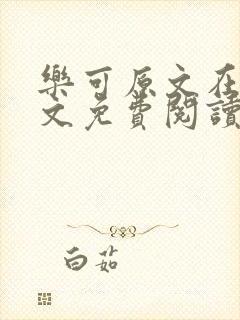 樂可原文在
文免費閱讀
白茹